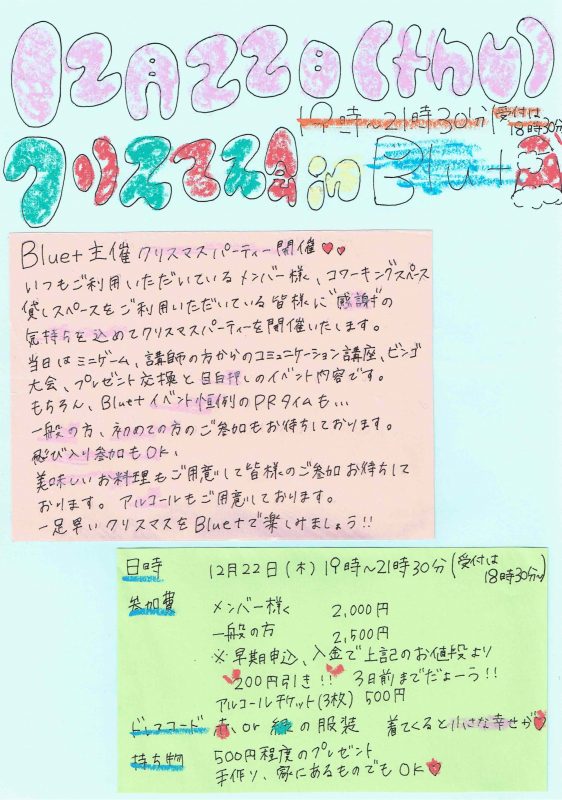 12月22日(thu)
19時〜21時30分(受付は18時30分)
クリスマス会 in Blue+
Blue+主催クリスマスパーティー開催
いつもご利用いただいているメンバー様、コワーキングスペース
貸しスペースをご利用いただいている皆様に"感謝"の
気持ちを込めてクリスマスパーティーを開催いたします。
当日はミニゲーム、講師の方からのコミュニケーション講座、ビンゴ
大会、プレゼント交換と目白押しのイベント内容です。
もちろん、Blue+イベント恒例のPRタイムも…
一般の方、初めての方のご参加もお待ちしております。
飛び入り参加もOK、
美味しいお料理もご用意して皆様のご参加お待ちして
おります。アルコールもご用意しております。
一足早いクリスマスをBlue+で楽しみましょう!!
日時 12月22日(木)19時〜21時30分(受付は18時30分〜)
参加費 メンバー様 2,000円
一般の方 2,500円
※早期申込、入金で上記のお値段より
200円引き!! 3日前までだよーう!!
アルコールチケット(3枚)500円
ドレスコード 赤、or 緑の服装 着てくると小さな幸せが
持ち物 500円程度のプレゼント
手作り、家にあるものでもOK